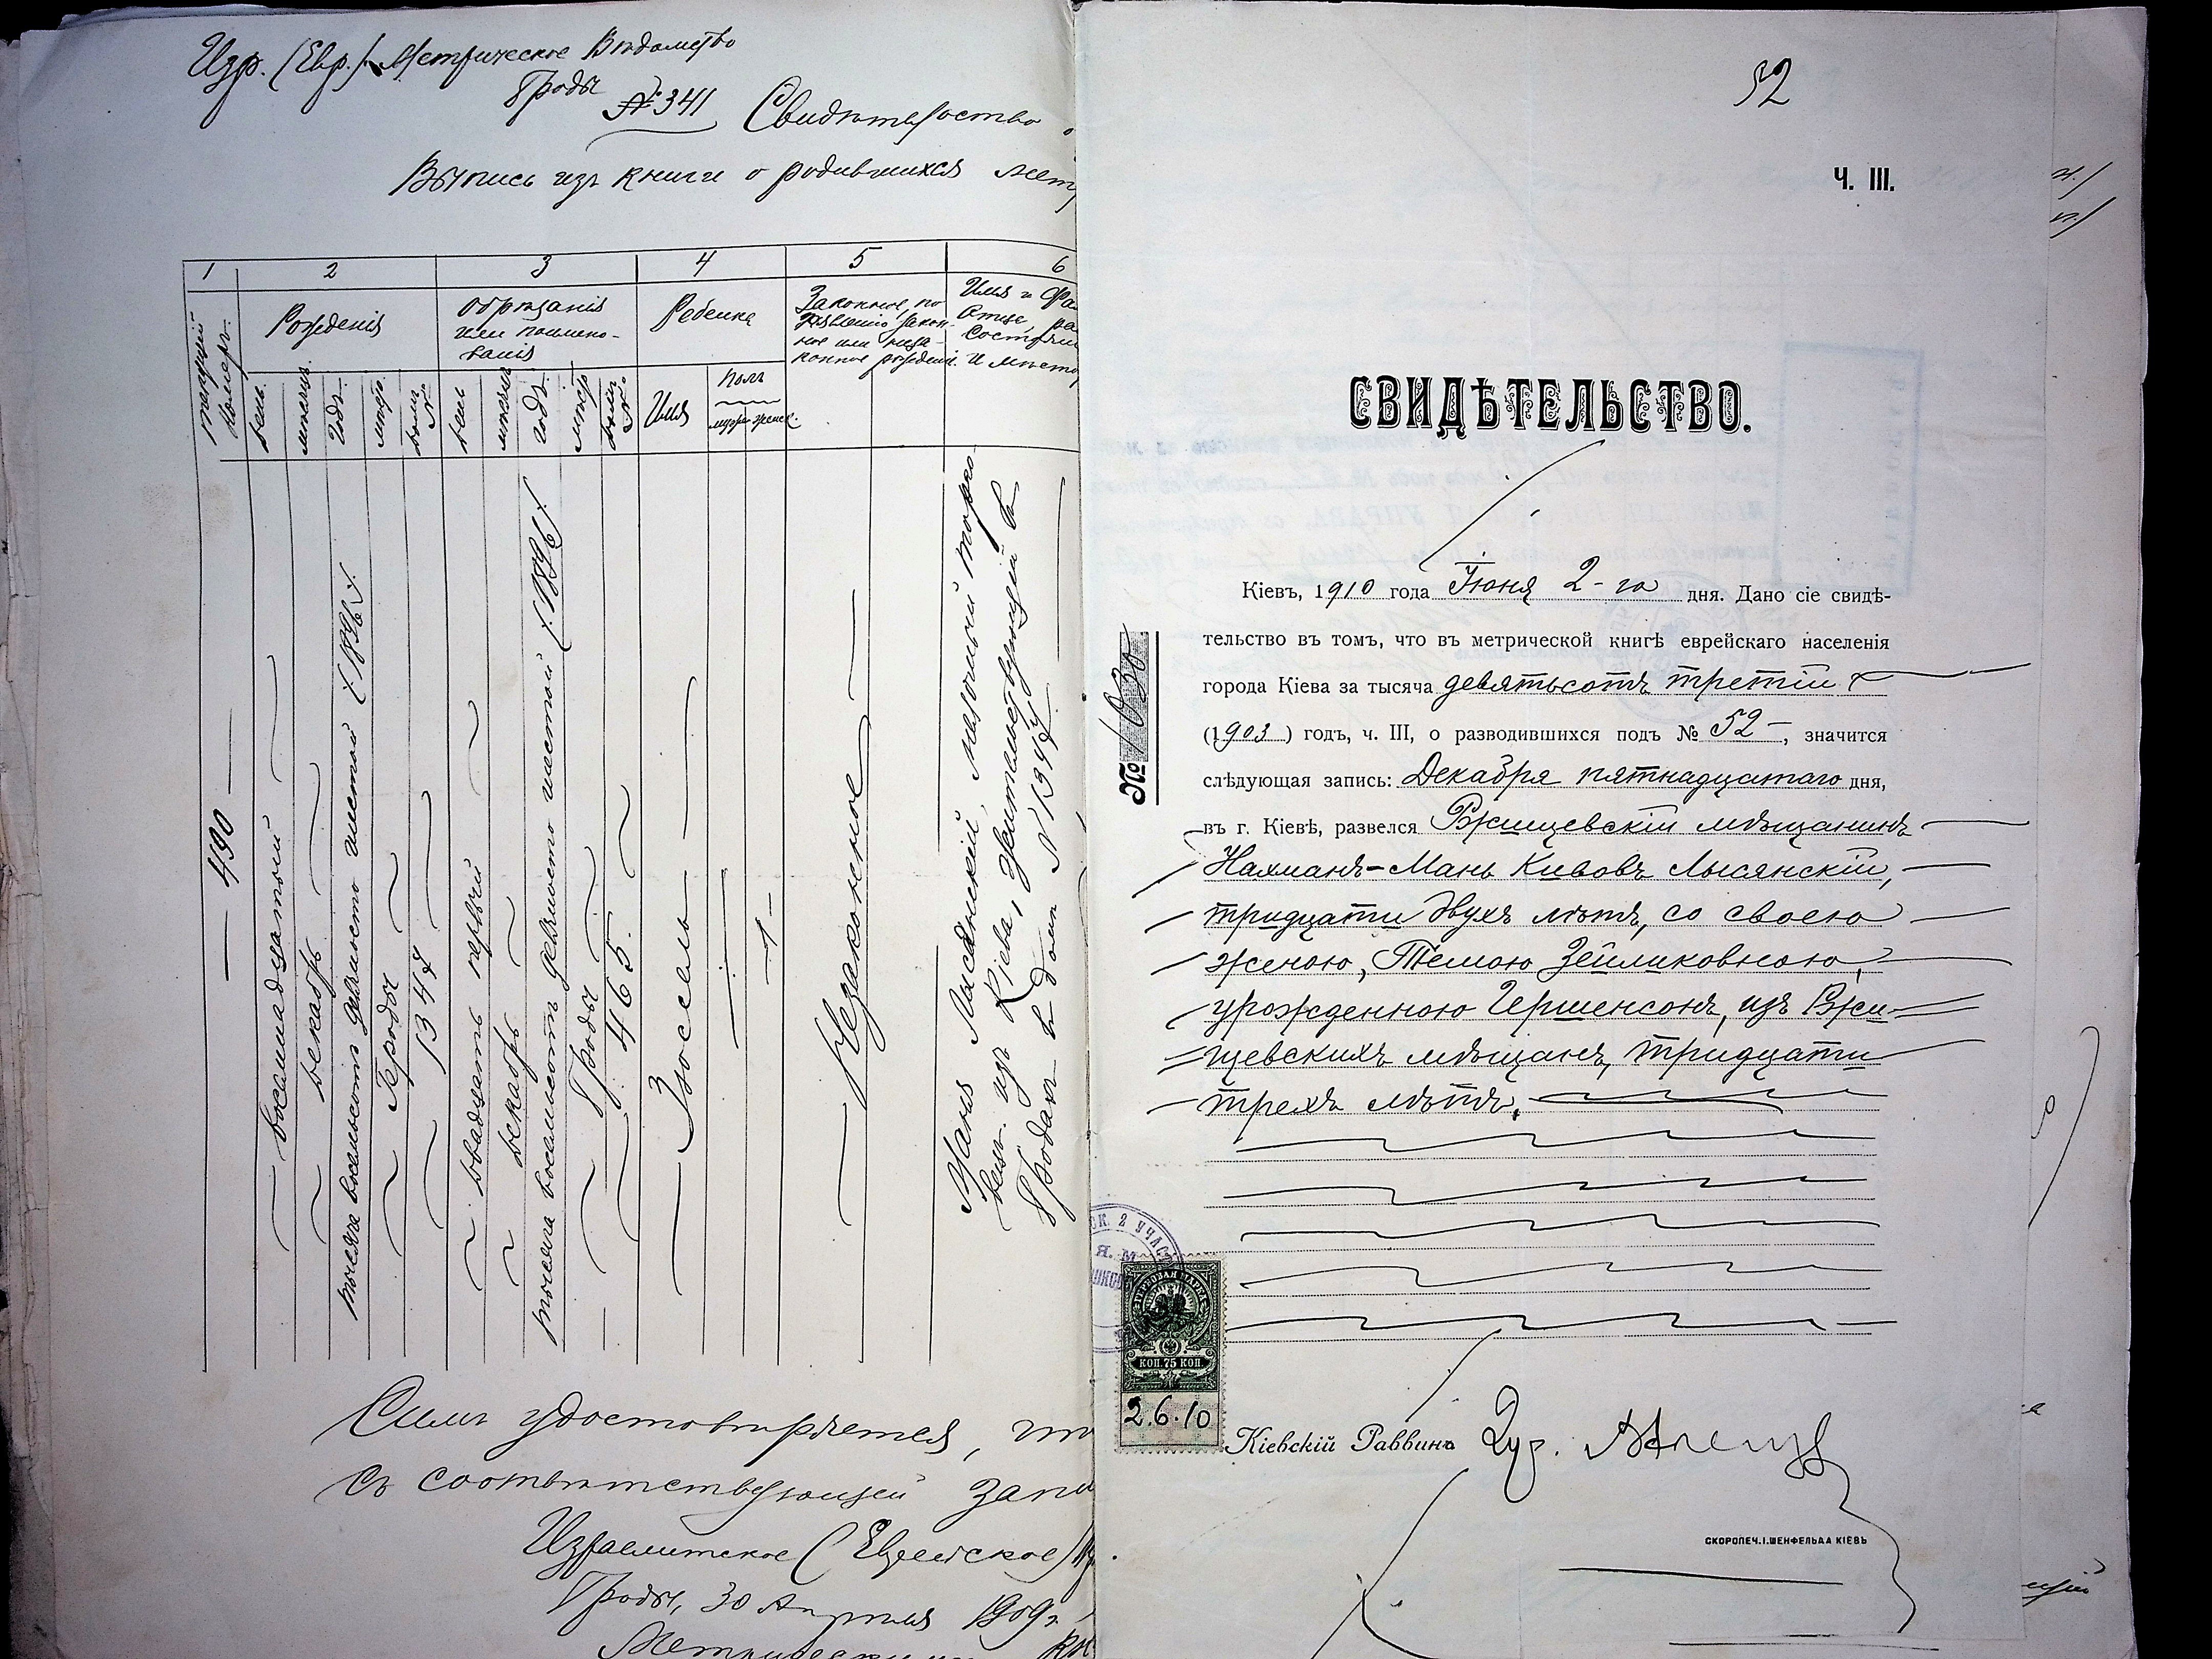 Изр. (Евр.) Метрическое Вѣдомство
Броды
№ 341 Свидѣтельство
Выпись изъ книги о родившихся
1 2 3 4 5 6
текущій номеръ.
Рожденія
Обрѣзанія
или наимено-
ванія
Ребенка
Законное, по
заявленію закон-
ное или неза-
конное рожденіе.
Имя и
Отца,
и мѣсто
день.
мѣсяцъ.
годъ.
мѣсто
домъ №.
день
мѣсяцъ
годъ.
мѣсто
домъ №.
Имя
полъ
муж. женск.
— 490 —
восемнадцатый
декабрь
тысяча восемьсотъ девяносто шестой (1896).
Броды
1347
двадцать первый
декабрь
тысяча восемьсотъ девяносто шестой (1896).
Броды
465.
Зюсель
1
Незаконное
Маня Лысянскій, мелочный торго-
вецъ изъ Кіева, жительствующій въ
Бродахъ въ домѣ № 1347
Симъ удостовѣряется,
съ соотвѣтствующей
Израелитское (Еврейское)
Броды, 30 Апрѣля 1909 г.
52
Ч. III.
СВИДѢТЕЛЬСТВО.
№ 1030
Кіевъ, 1910 года Іюня 2-го дня. Дано сіе свидѣ-
тельство въ томъ, что въ метрической книгѣ еврейскаго населенія
города Кіева за тысяча девятьсотъ третій
(1903) годъ, ч. III, о разводившихся подъ № 52 —, значится
слѣдующая запись: Декабря пятнадцатаго дня,
въ г. Кіевѣ, развелся Ржищевскій мѣщанинъ
Нахманъ-Мань Кивовъ Лысянскій,
тридцати двухъ лѣтъ, со своею
женою, Темою Зейликовною,
урожденною Гершенсонъ, изъ Ржи-
щевскихъ мѣщанъ, тридцати
трехъ лѣтъ.
СК. 2 УЧАСТ
Я. М
ГЕРБОВАЯ МАРКА
КОП. 75 КОП.
2.6.10
Кіевскій Раввинъ
СКОРОПЕЧ. І. ШЕНФЕЛЬДА КІЕВЪ